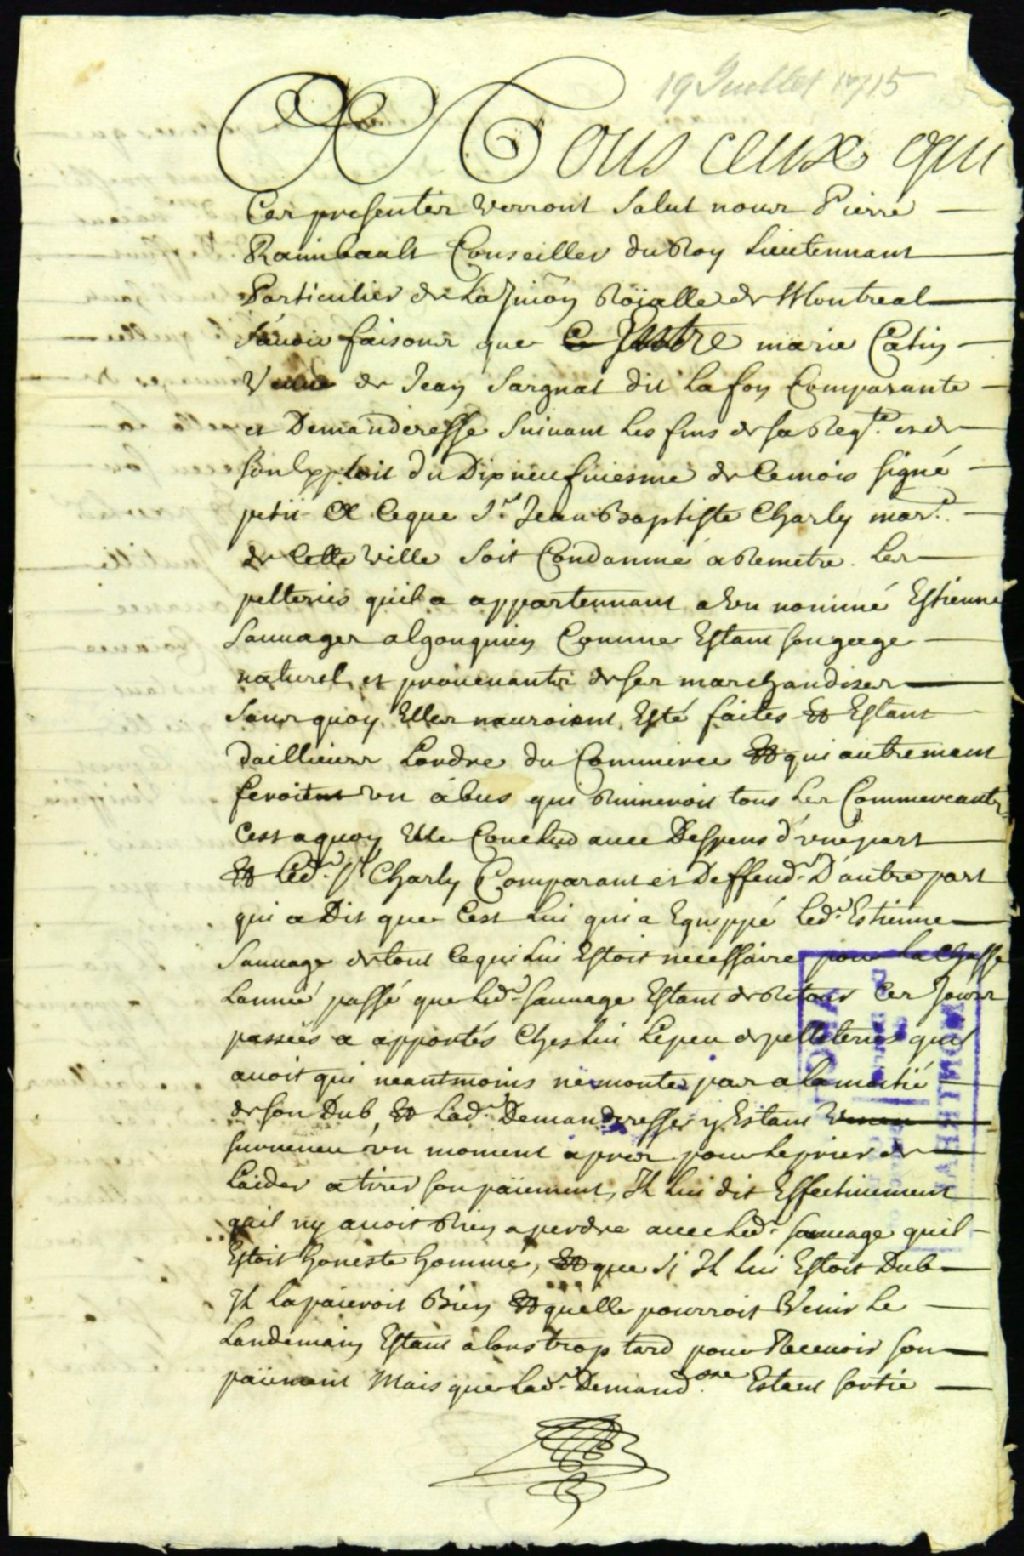 19 Juillet 1715
A Tous ceux qui
Ces presentes verront Salut nous Pierre
Raimbault Conseiller du Roy Lieutennant
Particulier de La Juri͠on Roïalle de Montreal
Sçavoir faisons que Entre marie Catin
Veuve de Jean Sargnat dit Lafon Comparante
et Demanderesse Suivant Les fins de sa Reqte. et de
son Exploit du Dixneufviesme de Cemois Signé
petit A Ceque Sr. Jean Baptiste Charly mard.
de Cette ville Soit Condamné a Remetre Les
pelteries quil a appartennant a Un nommé Estienne
Sauvages algonquin Comme Estant son gage
naturel et provenantes de ses marchandises
Sans quoy Elles nauroient Esté faites Et Estant
dailleurs Lordre du Commerce Et qui autrement
seroit un abus qui Ruineroit tous Les Commercants
Cest aquoy Elle Conclud avec Despens d'une part
Et Led. Sr. Charly Comparant et Deffend. D'autre part
qui a Dit que Cest Lui qui a Equippé Led. Estienne
Sauvage de tout Cequi Lui Estoit necessaire pour La Chasse
Lanneé passé que Led. Sauvage Estant de Retour Ces Jours
passeés a apportés Ches Lui Lepeu de pelleteries quil
avoit qui neantmoins ne monte pas a La moitié
de son Dub Et Lad. Demanderesse y Estant
survenue un moment apres pour Le prier de
Laider a tirer son païement, Il Lui dit Effectivement
quil ny avoit Rien a perdre avec Led. Sauvage quil
Estoit honeste homme, Et que si Il Lui Estoit Dub
Il La paieroit Bien Et quelle pourroit Venir Le
Landemain Estant alors trop tard pour Recevoir son
païement Mais que Lad. Demand.sse Estant sortie
MONTREAL